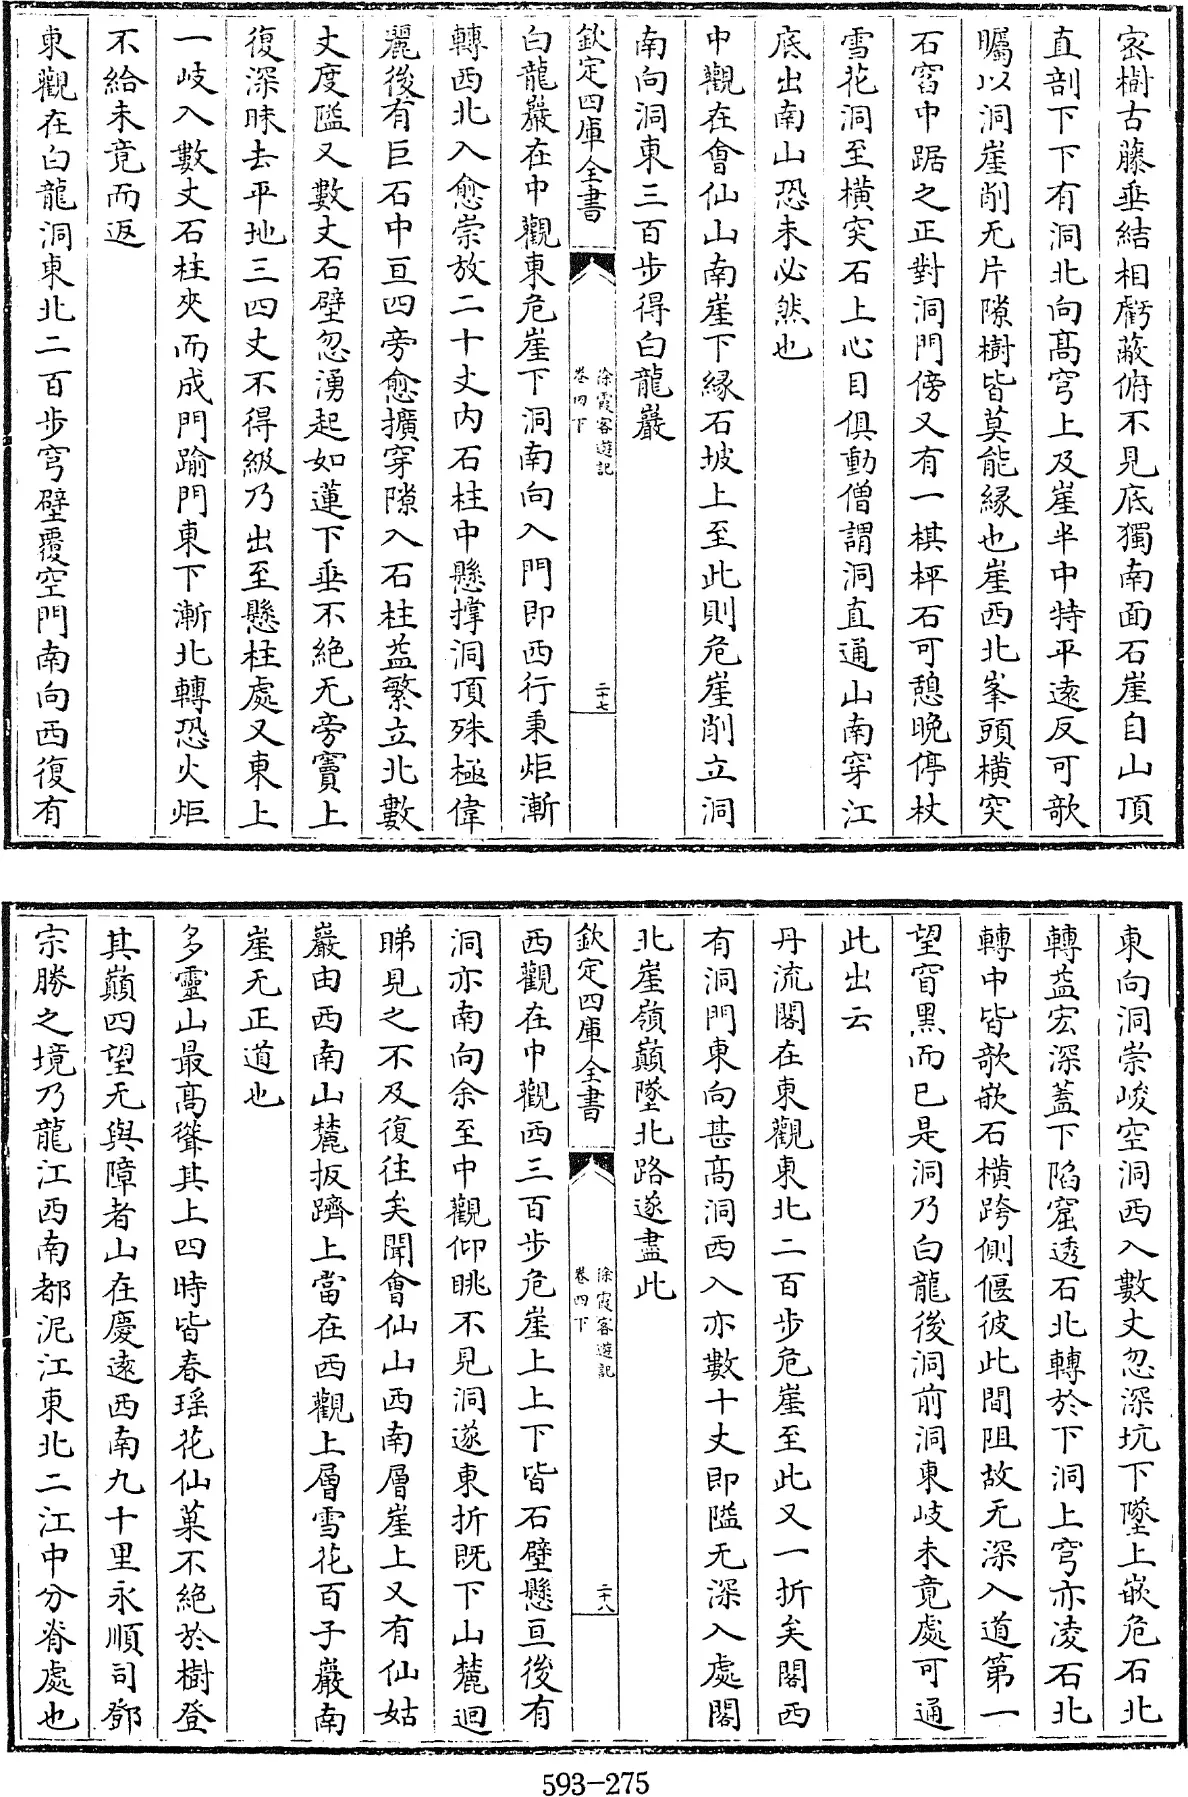 密樹古藤垂結相虧蔽俯不見底獨南面石崖自山頂
直剖下下有洞北向髙穹上及崖半中特平逺反可歌
矚以洞崖削无片隙樹皆莫能縁也崖西北峯頭橫突
石窅中踞之正對洞門傍又有一棋枰石可憩晚停杖
雪花洞至橫突石上心目俱動僧謂洞直通山南穿江
底出南山恐未必然也
中觀在會仙山南崖下縁石坡上至此則危崖削立洞
南向洞東三百步得白龍巖
欽定四庫全書
徐霞客遊記
卷四下
二十七
白龍巖在中觀東危崖下洞南向入門即西行秉炬漸
轉西北入愈崇放二十丈内石柱中懸撑洞頂殊極偉
麗後有巨石中亘四旁愈擴穿隙入石柱益繁立北數
丈度隘又數丈石壁忽湧起如蓮下垂不絶无旁竇上
復深昧去平地三四丈不得級乃出至懸柱處又東上
一岐入數丈石柱夾而成門踰門東下漸北轉恐火炬
不給未竟而返
東觀在白龍洞東北二百步穹壁覆空門南向西復有
東向洞崇峻空洞西入數丈忽深坑下墜上嵌危石北
轉益宏深蓋下陷窟透石北轉於下洞上穹亦凌石北
轉中皆欹嵌石橫跨側偃彼此間阻故无深入道第一
望窅黒而已是洞乃白龍後洞前洞東岐未竟處可通
此出云
丹流閣在東觀東北二百步危崖至此又一折矣閣西
有洞門東向甚髙洞西入亦數十丈即隘无深入處閣
北崖嶺巔墜北路遂盡此
欽定四庫全書
徐霞客遊記
卷四下
二十八
西觀在中觀西三百步危崖上上下皆石壁懸亘後有
洞亦南向余至中觀仰眺不見洞遂東折既下山麓迴
睇見之不及復往矣聞會仙山西南層崖上又有仙姑
巖由西南山麓扳躋上當在西觀上層雪花百子巖南
崖无正道也
多靈山最髙聳其上四時皆春瑶花仙菓不絶於樹登
其巔四望无與障者山在慶逺西南九十里永順司鄧
宗勝之境乃龍江西南都泥江東北二江中分脊處也
593-275